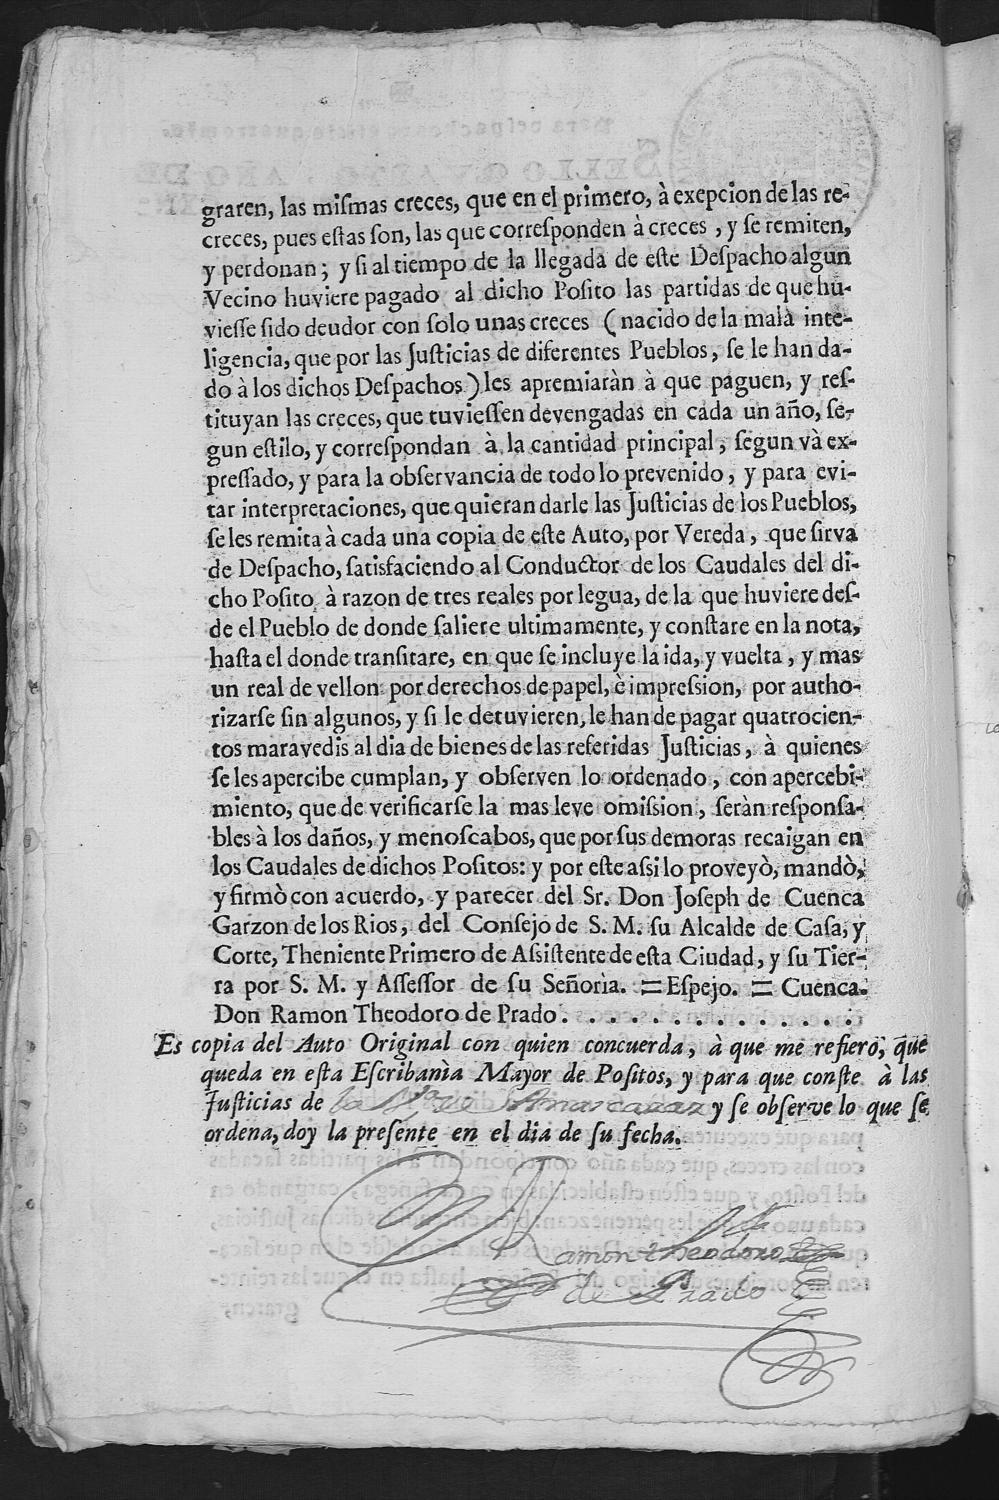 graren, las mismas creces, que en el primero, à exepcion de las re-
creces, pues estas son, las que corresponden à creces, y se remiten,
y perdonan; y si al tiempo de la llegada de este Despacho algun
Vecino huviere pagado al dicho Posito las partidas de que hu-
viesse sido deudor con solo unas creces (nacido de la mala inte-
ligencia, que por las Justicias de diferentes Pueblos, se le han da-
do à los dichos Despachos) les apremiaràn à que paguen, y res-
tituyan las creces, que tuviessen devengadas en cada un año, se-
gun estilo, y correspondan à la cantidad principal, segun và ex-
pressado, y para la observancia de todo lo prevenido, y para evi-
tar interpretaciones, que quieran darle las Justicias de los Pueblos,
se les remita à cada una copia de este Auto, por Vereda, que sirva
de Despacho, satisfaciendo al Conductor de los Caudales del di-
cho Posito à razon de tres reales por legua, de la que huviere des-
de el Pueblo de donde saliere ultimamente, y constare en la nota,
hasta el donde transitare, en que se incluye la ida, y vuelta, y mas
un real de vellon por derechos de papel, è impression, por autho-
rizarse sin algunos, y si le detuvieren, le han de pagar quatrocien-
tos maravedis al dia de bienes de las referidas Justicias, à quienes
se les apercibe cumplan, y observen lo ordenado, con apercebi-
miento, que de verificarse la mas leve omission, seràn responsa-
bles à los daños, y menoscabos, que por sus demoras recaigan en
los Caudales de dichos Positos: y por este assi lo proveyò, mandò,
y firmò con acuerdo, y parecer del Sr. Don Joseph de Cuenca
Garzon de los Rios, del Consejo de S. M. su Alcalde de Casa, y
Corte, Theniente Primero de Assistente de esta Ciudad, y su Tier-
ra por S. M. y Assessor de su Señorìa. = Espejo. = Cuenca.
Don Ramon Theodoro de Prado . . . . . . . . . . . . .
Es copia del Auto Original con quien concuerda, à que me refiero, que
queda en esta Escribanìa Mayor de Positos, y para que conste à las
Justicias de la Va. de Almascaraz y se observe lo que se
ordena, doy la presente en el dia de su fecha.
Ramon Theodoro
de Prado